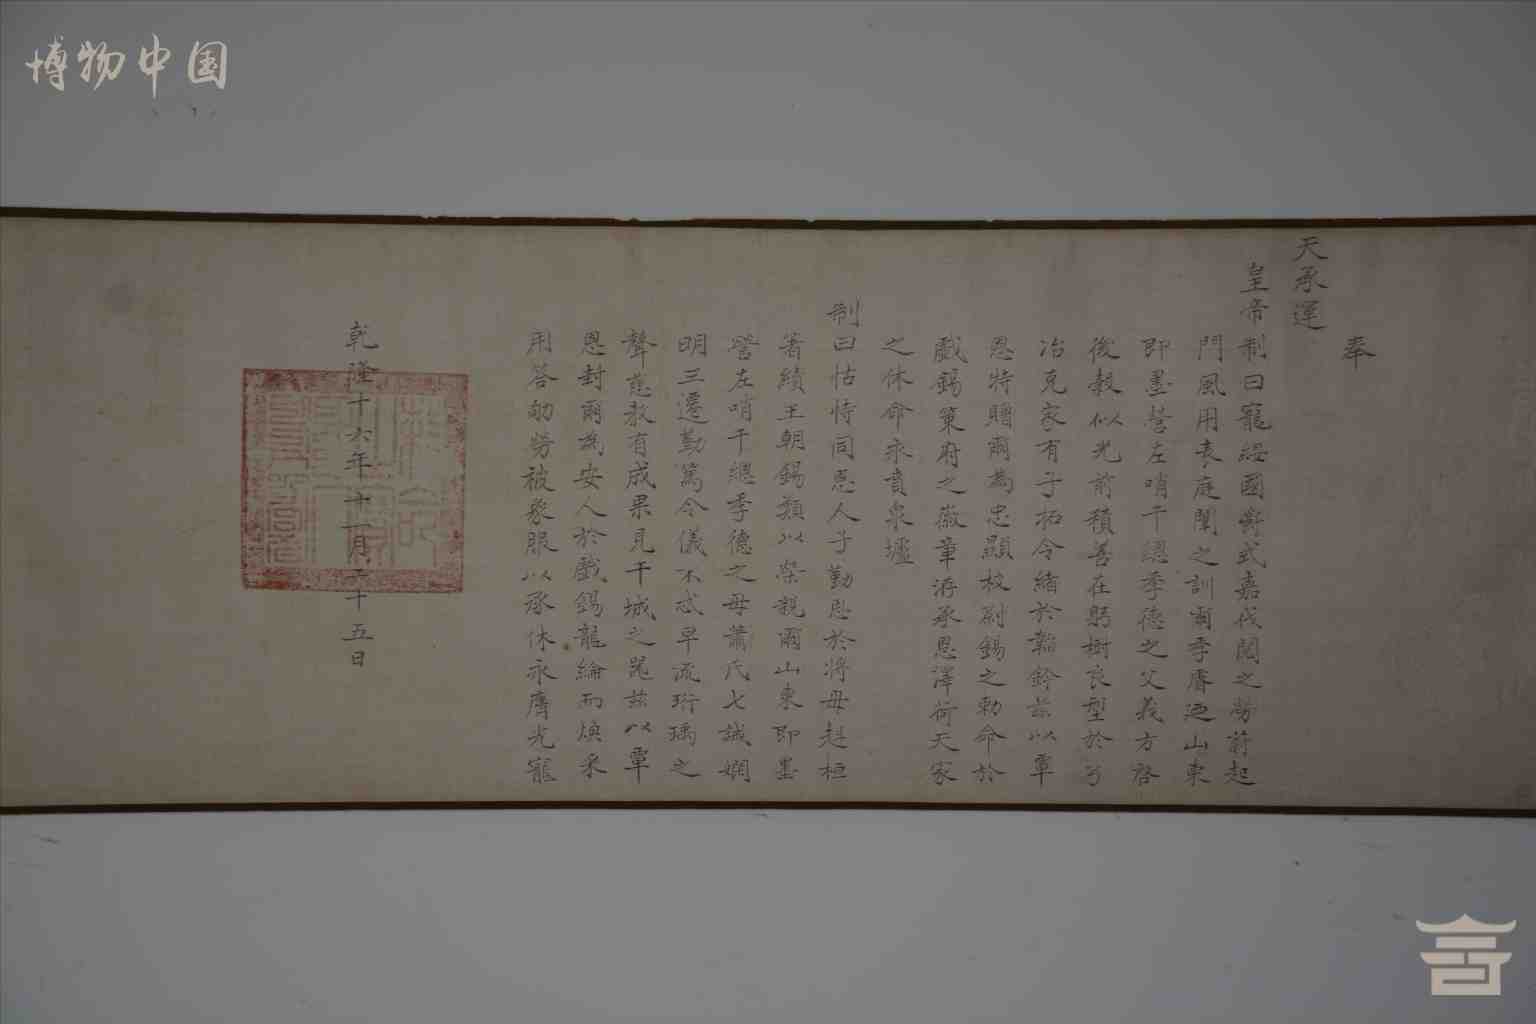 博物中国
奉
天承運
皇帝制曰寵綏國爵式嘉伐閱之勞蔚起
門風用表庭闈之訓爾季膺迺山東
即墨營左哨千總季德之父義方啓
後穀似光前積善在躬樹良型於弓
冶克家有子拓令緒於韜鈐茲以覃
恩特贈爾為忠顯校尉錫之勅命於
戲錫策府之徽章洊承恩澤荷天家
之休命永賁泉壚
制曰怙恃同恩人子勤思於將母赳桓
著績王朝錫類以榮親爾山東即墨
營左哨千總季德之母蕭氏七誡嫻
明三遷勤篤令儀不忒早流珩瑀之
聲慈教有成果見干城之器茲以覃
恩封爾為安人於戲錫龍綸而煥采
用答劬勞被象服以承休永膺光寵
乾隆十六年十一月二十五日